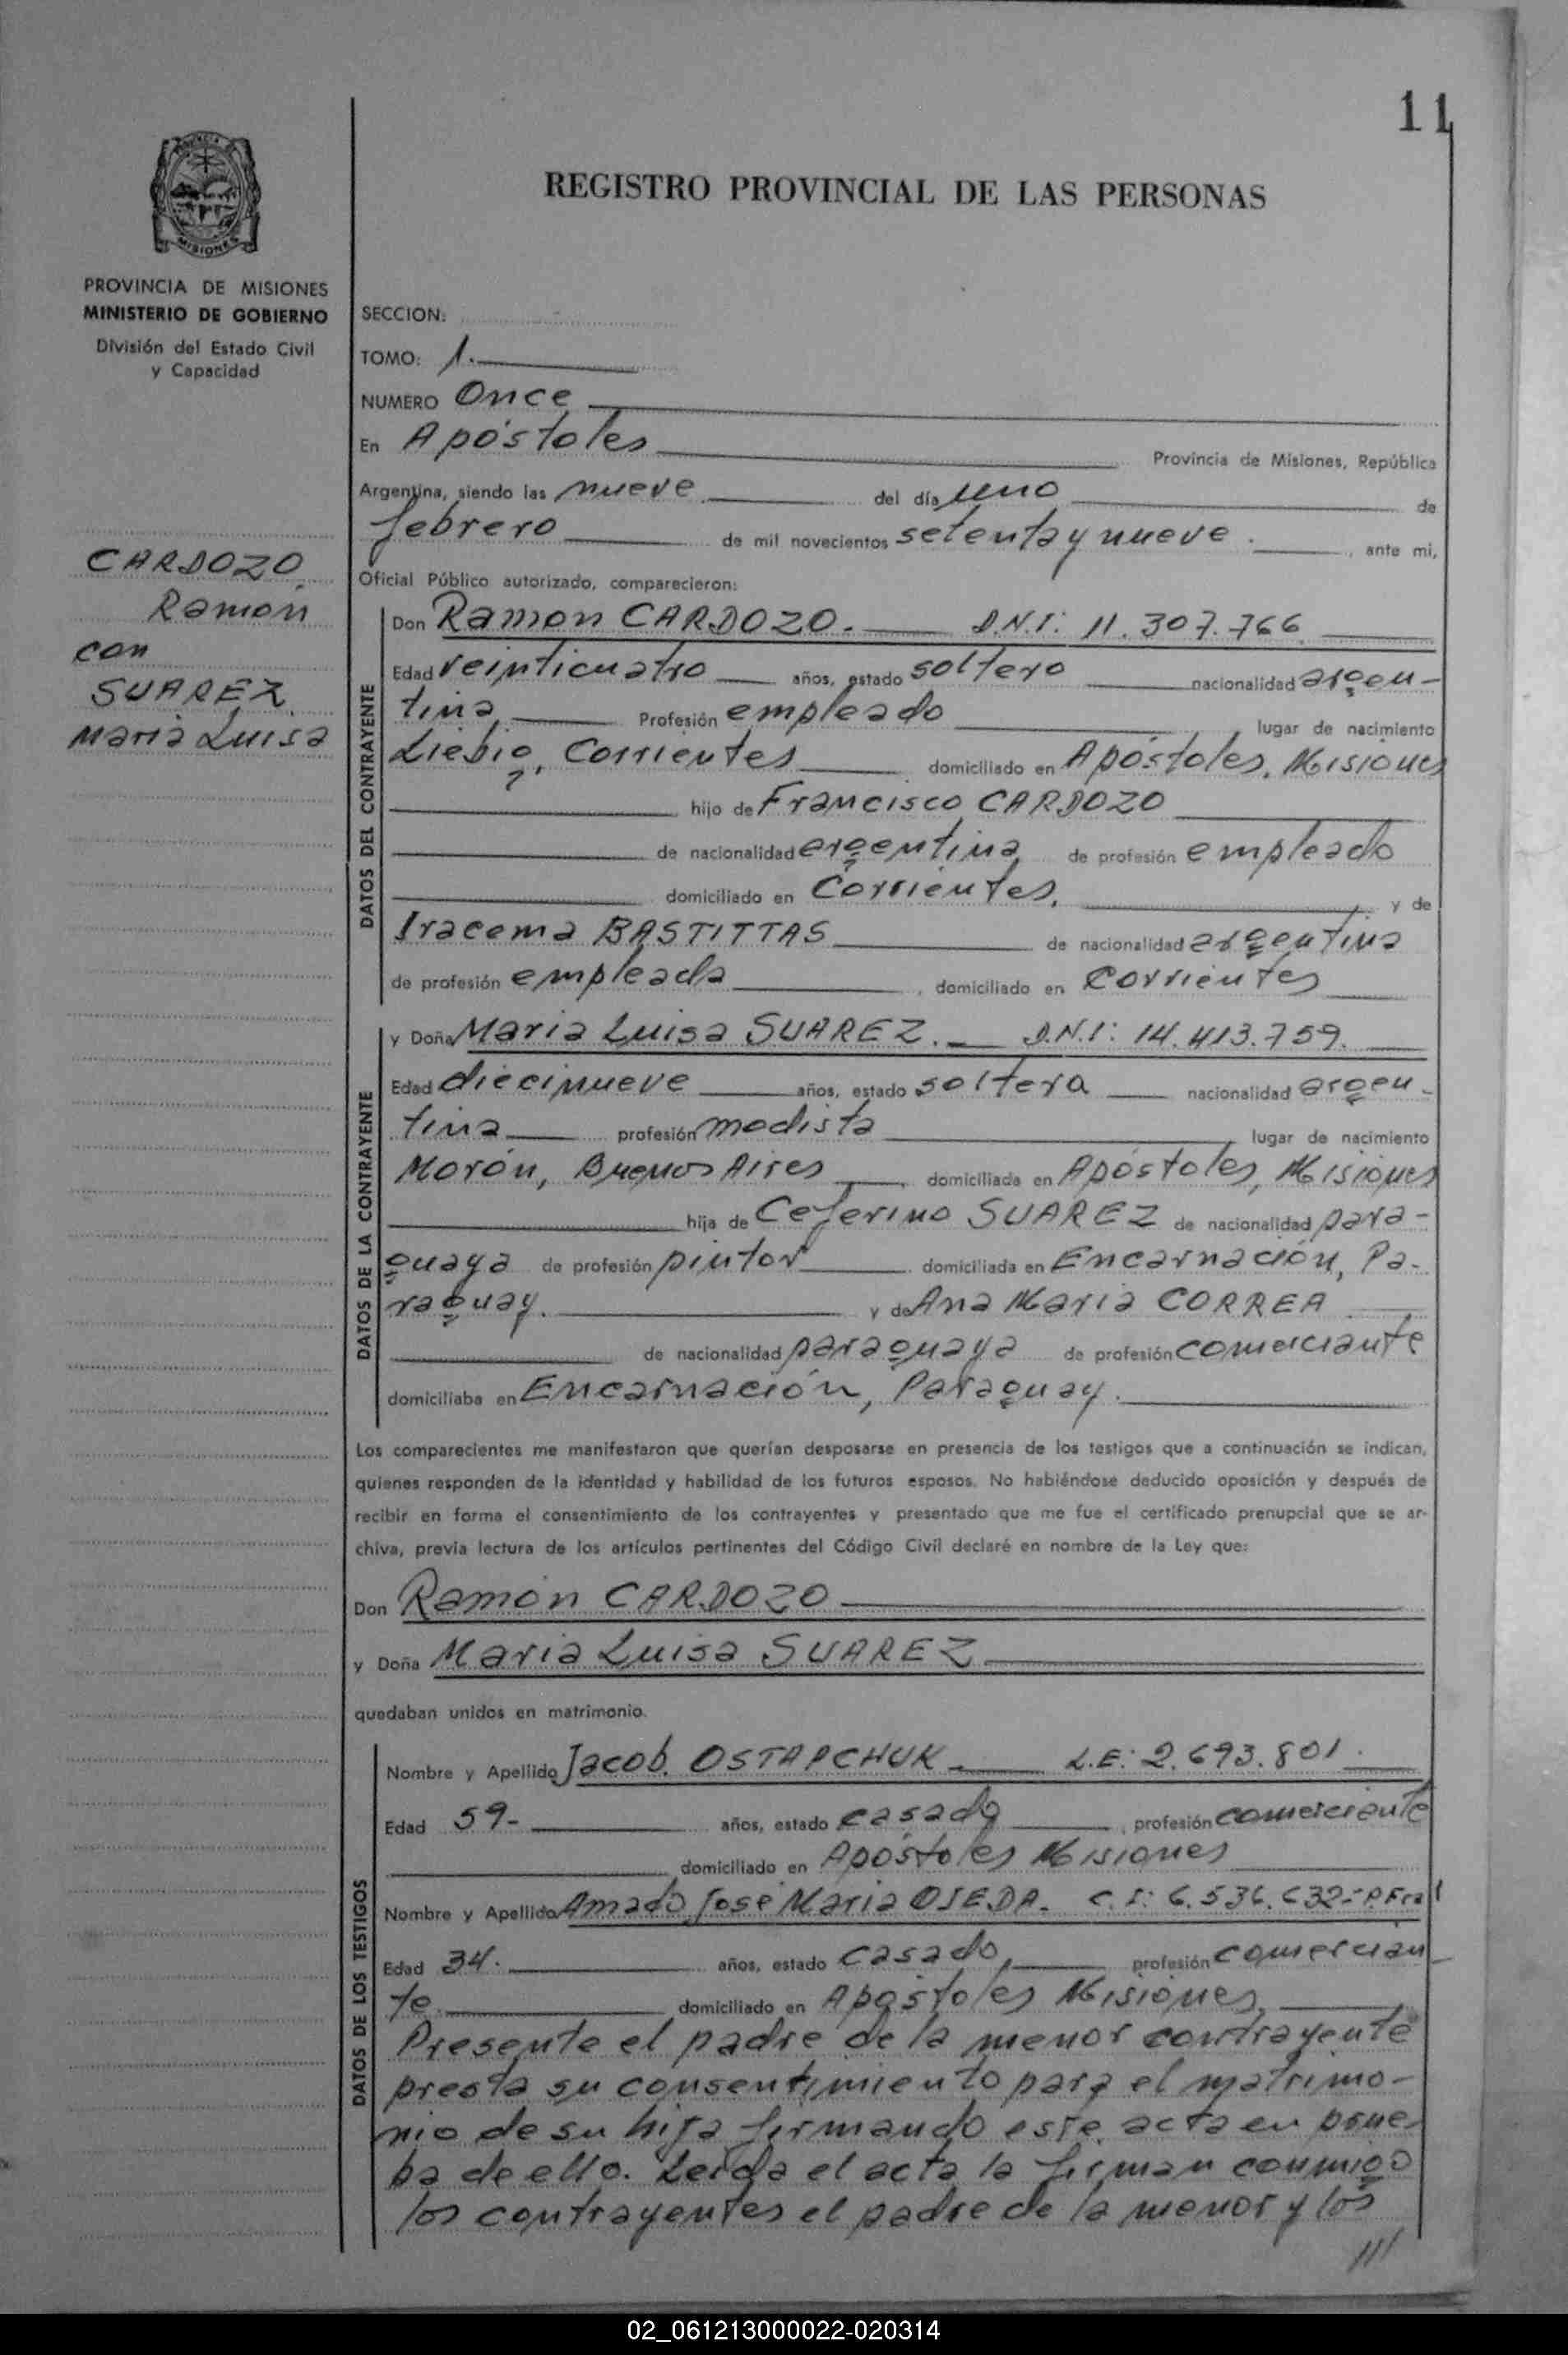 11
REGISTRO PROVINCIAL DE LAS PERSONAS
MISIONES
PROVINCIA DE MISIONES
MINISTERIO DE GOBIERNO
División del Estado Civil
y Capacidad
CARDOZO
Ramón
con
SUAREZ
Maria Luisa
SECCION:
TOMO: 1.
NUMERO Once
En Apóstoles Provincia de Misiones, República
Argentina, siendo las nueve del día uno de
febrero de mil novecientos setenta y nueve. , ante mi,
Oficial Público autorizado, comparecieron:
DATOS DEL CONTRAYENTE
Don Ramon CARDOZO. D.N.I: 11.307.766
Edad veinticuatro años, estado soltero nacionalidad argen-
tina, Profesión empleado lugar de nacimiento
Liebig, Corrientes domiciliado en Apóstoles, Misiones
hijo de Francisco CARDOZO
de nacionalidad argentina de profesión empleado
domiciliado en Corrientes, y de
Iracema BASTITTAS de nacionalidad argentina
de profesión empleada , domiciliado en Corrientes
DATOS DE LA CONTRAYENTE
y Doña Maria Luisa SUAREZ. D.N.I: 14.413.759.
Edad diecinueve años, estado soltera nacionalidad argen-
tina profesión modista lugar de nacimiento
Morón, Buenos Aires domiciliada en Apóstoles, Misiones
hija de Ceferino SUAREZ de nacionalidad para-
guaya de profesión pintor domiciliada en Encarnación, Pa-
raguay. y de Ana Maria CORREA
de nacionalidad paraguaya de profesión comerciante
domiciliaba en Encarnación, Paraguay.
Los comparecientes me manifestaron que querían desposarse en presencia de los testigos que a continuación se indican,
quienes responden de la identidad y habilidad de los futuros esposos. No habiéndose deducido oposición y después de
recibir en forma el consentimiento de los contrayentes y presentado que me fue el certificado prenupcial que se ar-
chiva, previa lectura de los artículos pertinentes del Código Civil declaré en nombre de la Ley que:
Don Ramón CARDOZO
y Doña Maria Luisa SUAREZ
quedaban unidos en matrimonio.
DATOS DE LOS TESTIGOS
Nombre y Apellido Jacob OSTAPCHUK L.E: 2.693.801.
Edad 59- años, estado casado , profesión comerciante
domiciliado en Apóstoles Misiones
Nombre y Apellido Amado José Maria OJEDA. C.I: 6.536.632-
Edad 34. años, estado casado, profesión comercian
te. domiciliado en Apóstoles Misiones,
Presente el padre de la menor contrayente
presta su consentimiento para el matrimo-
nio de su hija firmando este acta en prue
ba de ello. Leida el acta la firman conmigo
los contrayentes el padre de la menor y los
///
02_061213000022-020314